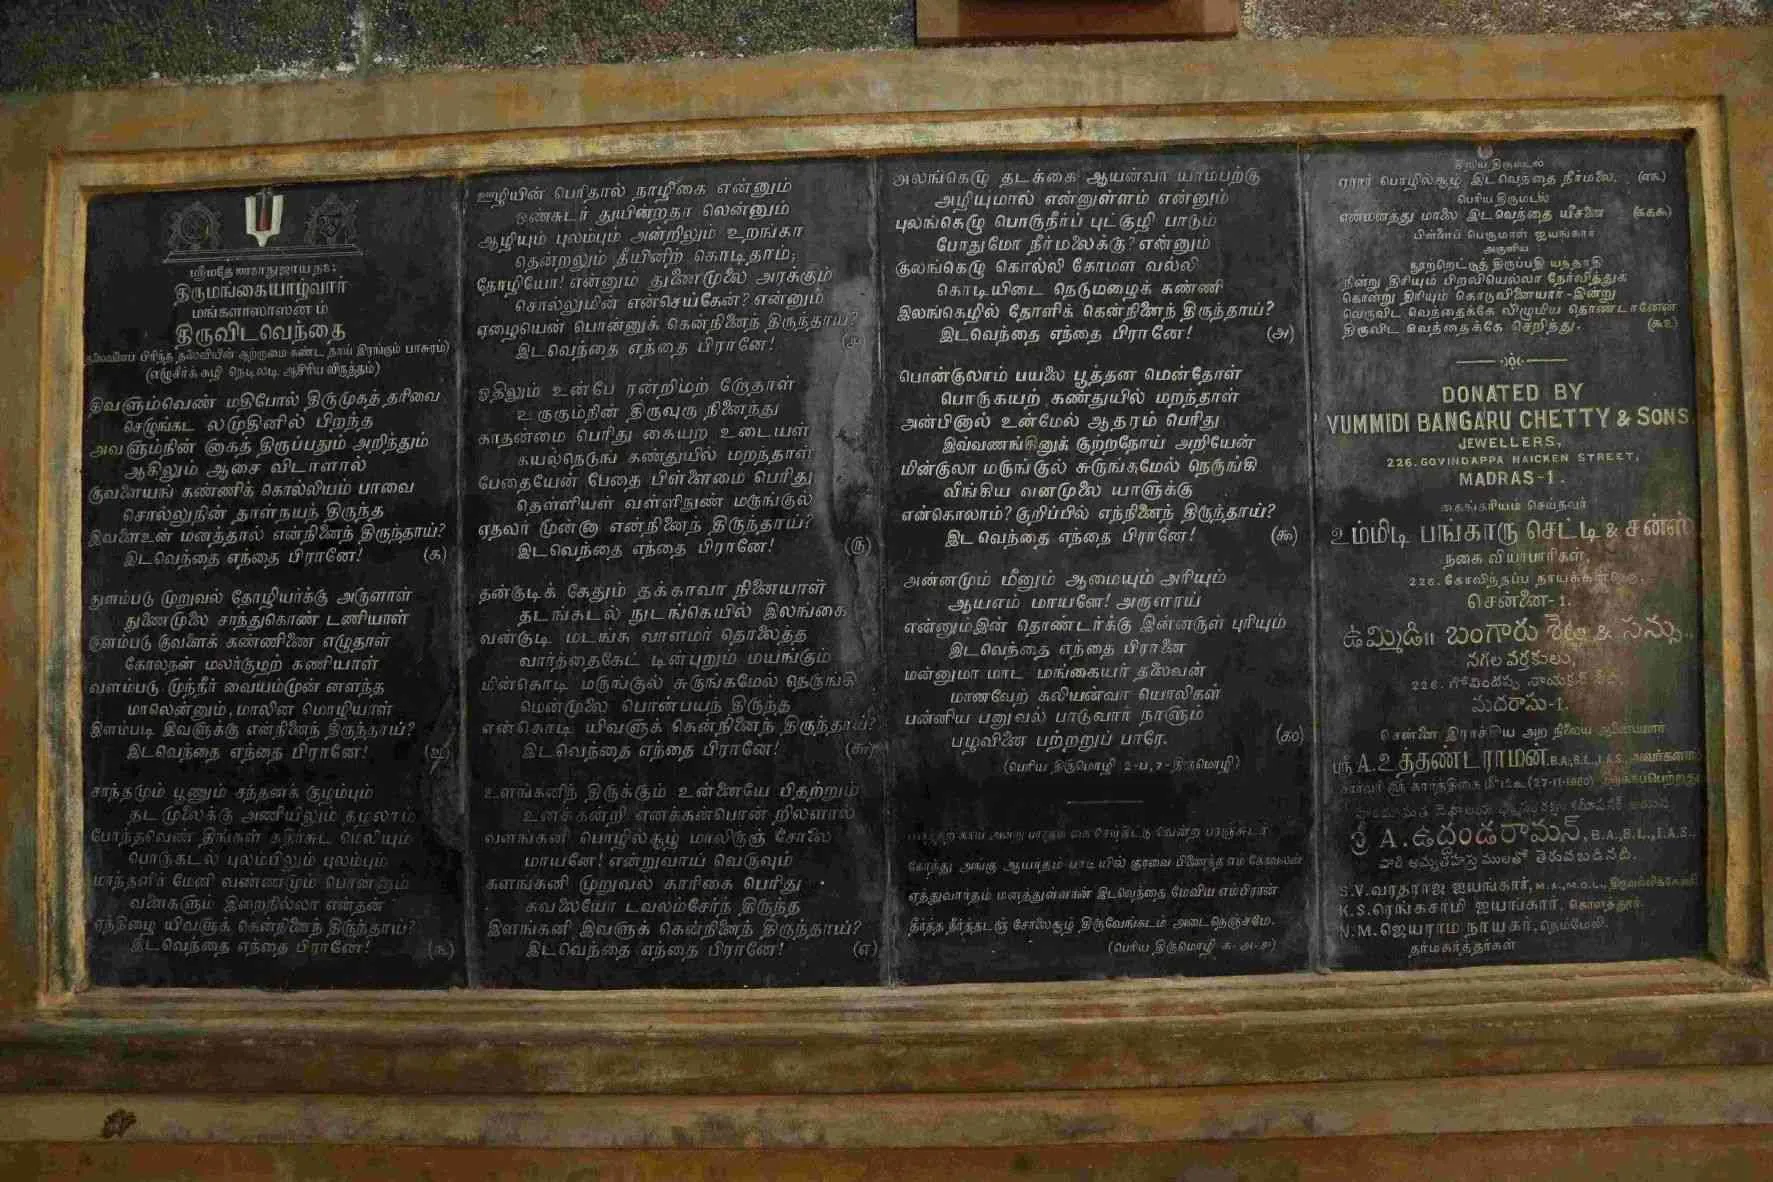 ஸ்ரீமதே ராமாநுஜாய நம:
திருமங்கையாழ்வார்
மங்களாஸாஸனம்
திருவிடவெந்தை
தலைவனைப் பிரிந்த தலைவியின் ஆற்றாமை கண்ட தாய் இரங்கும் பாசுரம்)
(எழுசீர்க் கழி நெடிலடி ஆசிரிய விருத்தம்)
திவளும்வெண் மதிபோல் திருமுகத் தரிவை
செழுங்கட லமுதினில் பிறந்த
அவளும்நின் னாகத் திருப்பதும் அறிந்தும்
ஆகிலும் ஆசை விடாளால்
குவளையங் கண்ணிக் கொல்லியம் பாவை
சொல்லுநின் தாள்நயந் திருந்த
இவளைஉன் மனத்தால் என்நினைந் திருந்தாய்?
இடவெந்தை எந்தை பிரானே! (க)
துளம்படு முறுவல் தோழியர்க்கு அருளாள்
துணைமுலை சாந்துகொண் டணியாள்
குளம்படு குவளைக் கண்ணிணை எழுதாள்
கோலநன் மலர்குழற் கணியாள்
வளம்படு முந்நீர் வையம்முன் னளந்த
மாலென்னும், மாலின மொழியாள்
இளம்படி இவளுக்கு என்நினைந் திருந்தாய்?
இடவெந்தை எந்தை பிரானே! (உ)
சாந்தமும் பூணும் சந்தனக் குழம்பும்
தடமுலைக்கு அணியிலும் தழலாம்
போந்தவெண் திங்கள் கதிர்சுட மெலியும்
பொருகடல் புலம்பிலும் புலம்பும்
மாந்தளிர் மேனி வண்ணமும் பொன்னாம்
வளைகளும் இறைநில்லா என்தன்
ஏந்திழை யிவளுக் கென்நினைந் திருந்தாய்?
இடவெந்தை எந்தை பிரானே! (ங)
ஊழியின் பெரிதால் நாழிகை என்னும்
ஒண்சுடர் துயின்றதா லென்னும்
ஆழியும் புலம்பும் அன்றிலும் உறங்கா
தென்றலும் தீயினிற் கொடிதாம்;
தோழியோ! என்னும் துணைமுலை அரக்கும்
சொல்லுமின் என்செய்கேன்? என்னும்
ஏழையென் பொன்னுக் கென்நினைந் திருந்தாய்?
இடவெந்தை எந்தை பிரானே! (ச)
ஓதிலும் உன்பே ரன்றிமற் றோதாள்
உருகும்நின் திருவுரு நினைந்து
காதன்மை பெரிது கையற உடையள்
கயல்நெடுங் கண்துயில் மறந்தாள்
பேதையேன் பேதை பிள்ளைமை பெரிது
தெள்ளியள் வள்ளிநுண் மருங்குல்
ஏதலர் முன்னா என்நினைந் திருந்தாய்?
இடவெந்தை எந்தை பிரானே! (ரு)
தன்குடிக் கேதும் தக்காவா நினையாள்
தடங்கடல் நுடங்கெயில் இலங்கை
வன்குடி மடங்க வாளமர் தொலைத்த
வார்த்தைகேட் டின்புறும் மயங்கும்
மின்கொடி மருங்குல் சுருங்கமேல் நெருங்கி
மென்முலை பொன்பயந் திருந்த
என்கொடி யிவளுக் கென்நினைந் திருந்தாய்?
இடவெந்தை எந்தை பிரானே! (சு)
உளங்கனிந் திருக்கும் உன்னையே பிதற்றும்
உனக்கன்றி எனக்கன்பொன் றிலளால்
வளங்கனி பொழில்சூழ் மாலிருஞ் சோலை
மாயனே! என்றுவாய் வெருவும்
களங்கனி முறுவல் காரிகை பெரிது
கவலையோ டவலம்சேர்ந் திருந்த
இளங்கனி இவளுக் கென்நினைந் திருந்தாய்?
இடவெந்தை எந்தை பிரானே! (எ)
அலங்கெழு தடக்கை ஆயன்வா யாம்பற்கு
அழியுமால் என்னுள்ளம் என்னும்
புலங்கெழு பொருநீர்ப் புட்குழி பாடும்
போதுமோ நீர்மலைக்கு? என்னும்
குலங்கெழு கொல்லி கோமள வல்லி
கொடியிடை நெடுமழைக் கண்ணி
இலங்கெழில் தோளிக் கென்நினைந் திருந்தாய்?
இடவெந்தை எந்தை பிரானே! (அ)
பொன்குலாம் பயலை பூத்தன மென்தோள்
பொருகயற் கண்துயில் மறந்தாள்
அன்பினால் உன்மேல் ஆதரம் பெரிது
இவ்வணங்கினுக் குற்றநோய் அறியேன்
மின்குலா மருங்குல் சுருங்கமேல் நெருங்கி
வீங்கிய வனமுலை யாளுக்கு
என்கொலாம்? குறிப்பில் எந்நினைந் திருந்தாய்?
இடவெந்தை எந்தை பிரானே! (கூ)
அன்னமும் மீனும் ஆமையும் அரியும்
ஆயஎம் மாயனே! அருளாய்
என்னும்இன் தொண்டர்க்கு இன்னருள் புரியும்
இடவெந்தை எந்தை பிரானை
மன்னுமா மாட மங்கையர் தலைவன்
மானவேற் கலியன்வா யொலிகள்
பன்னிய பனுவல் பாடுவார் நாளும்
பழவினை பற்றறுப் பாரே. (க௦)
(பெரிய திருமொழி 2-ப, 7-திருமொழி)
ஏத்துவார்தம் மனத்துள்ளான் இடவெந்தை மேவிய எம்பிரான்
தீர்த்த நீர்த்தடஞ் சோலைசூழ் திருவேங்கடம் அடைநெஞ்சமே.
(பெரிய திருமொழி க-அ-ச)
சிறிய திருமடல்
ஏரார் பொழில்சூழ் இடவெந்தை நீர்மலை,
பெரிய திருமடல்
என்மனத்து மாலை இடவெந்தை யீசனை
பிள்ளைப் பெருமாள் ஐயங்கார்
அருளிய
நூற்றெட்டுத் திருப்பதி யந்தாதி
நின்று திரியும் பிறவியெல்லா நேர்வித்துக்
கொன்று திரியும் கொடுவினையார்-இன்று
வெருவிட வெந்தைக்கே விழுமிய தொண்டானேன்
திருவிட வெந்தைக்கே செறித்து.
DONATED BY
VUMMIDI BANGARU CHETTY & SONS.
JEWELLERS,
226. GOVINDAPPA NAICKEN STREET,
MADRAS-1.
கைங்கரியம் செய்தவர்
உம்மிடி பங்காரு செட்டி & சன்ஸ்
நகை வியாபாரிகள்,
226. கோவிந்தப்ப நாயக்கன் தெரு,
சென்னை-1.
ఉమ్మిడి॥ బంగారు శెట్టి & సన్సు.,
నగల వర్తకులు,
226. గోవిందప్ప నాయకన్ వీధి,
మదరాసు-1.
சென்னை இராச்சிய அற நிலைய ஆணையாளர்
ஸ்ரீ A. உத்தண்டராமன், B.A.,B.L.,I.A.S., அவர்களால்
(27-11-1960)
శ్రీ A. ఉదండరామన్, B.A.,B.L.,I.A.S.,
S.V. வரதராஜ ஐயங்கார், M.A.,M.O.L., திருவல்லிக்கேணி
K.S. ரெங்கசாமி ஐயங்கார், கொளத்தூர்.
N.M. ஜெயராம நாயகர், நெம்மேலி.
தர்மகர்த்தர்கள்